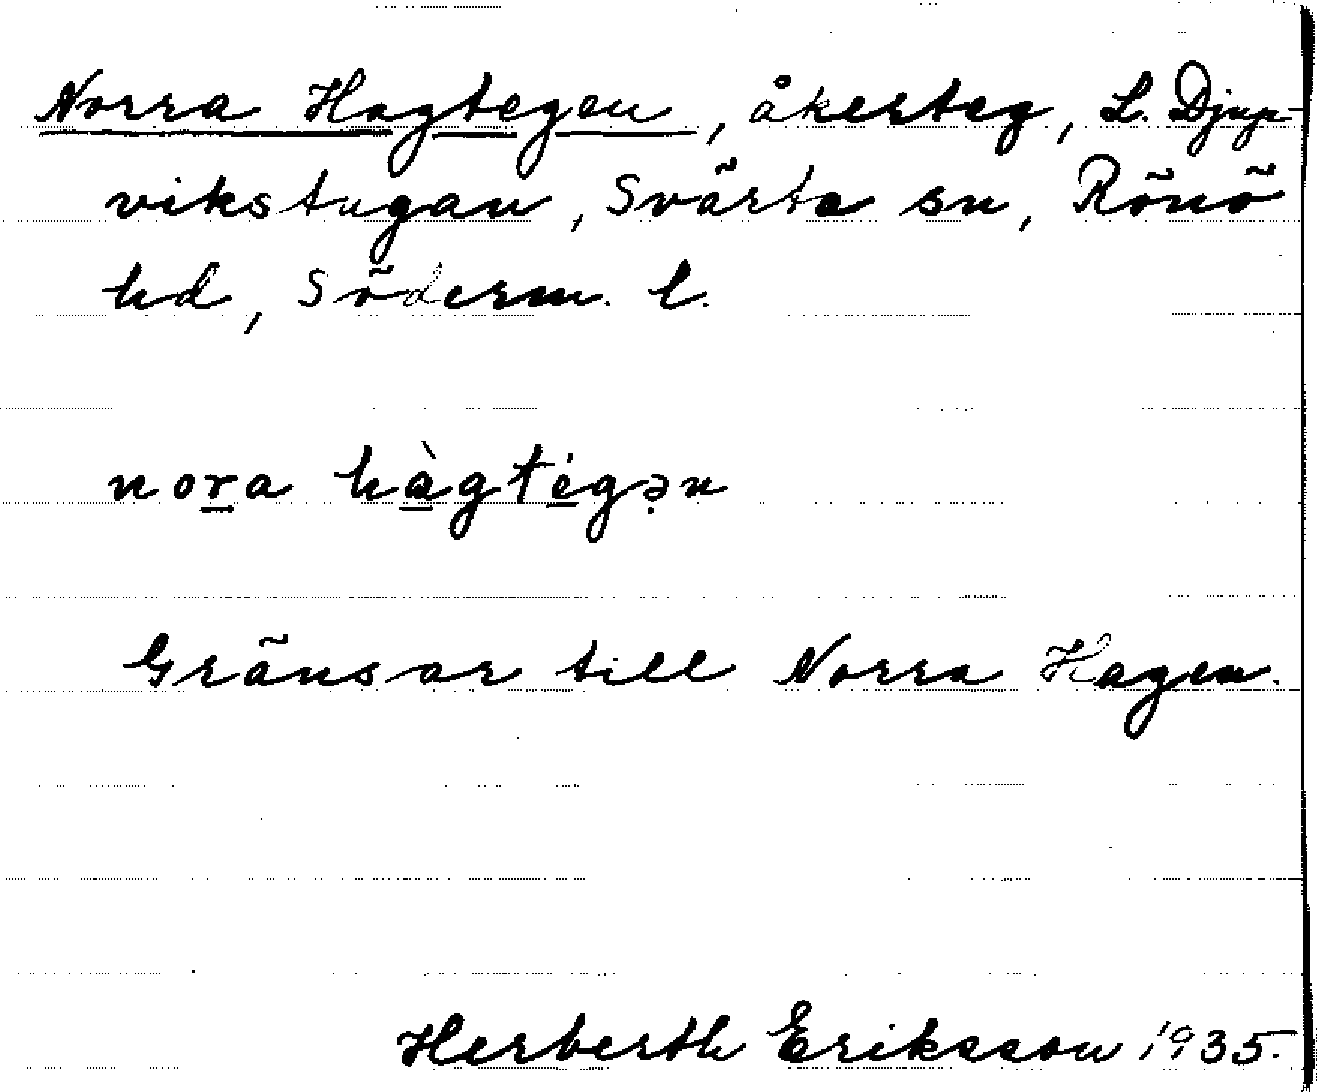 Norra Hagtegen, åkerteg, L. Djup-
vikstugan, Svärta sn, Rönö
hd, Söderm. l.
nor̲a hà̲gté̲gə̣n
Gränsar till Norra Hagen.
Herberth Eriksson 1935.